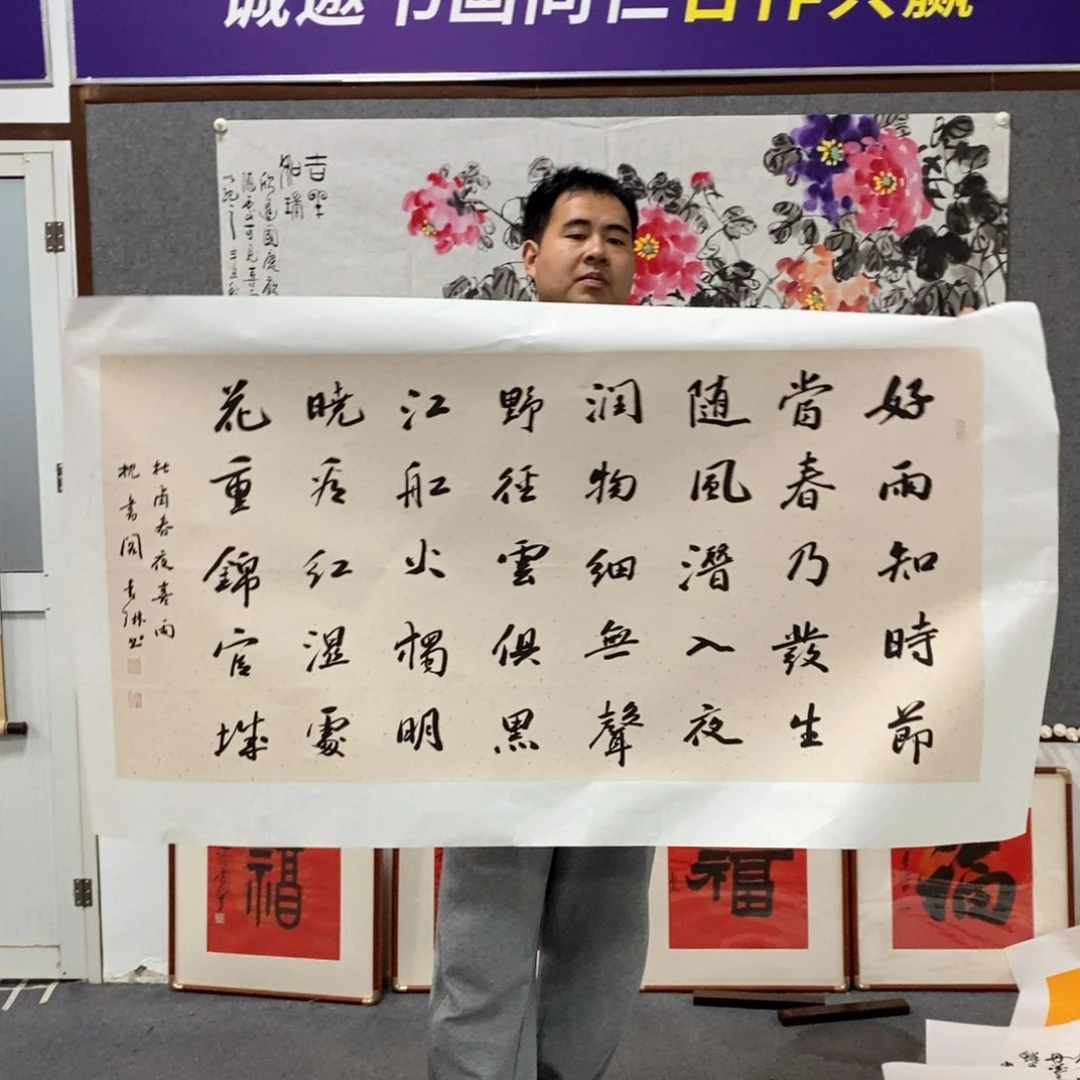 诚邀书画同仁合作共赢
吉羊
如瑞
好雨知時節
當春乃發生
随風潛入夜
润物细無聲
野徑雲俱黑
江船火燭明
曉看紅濕處
花重錦官城
杜甫春夜喜雨
枕書閣
福
福
福